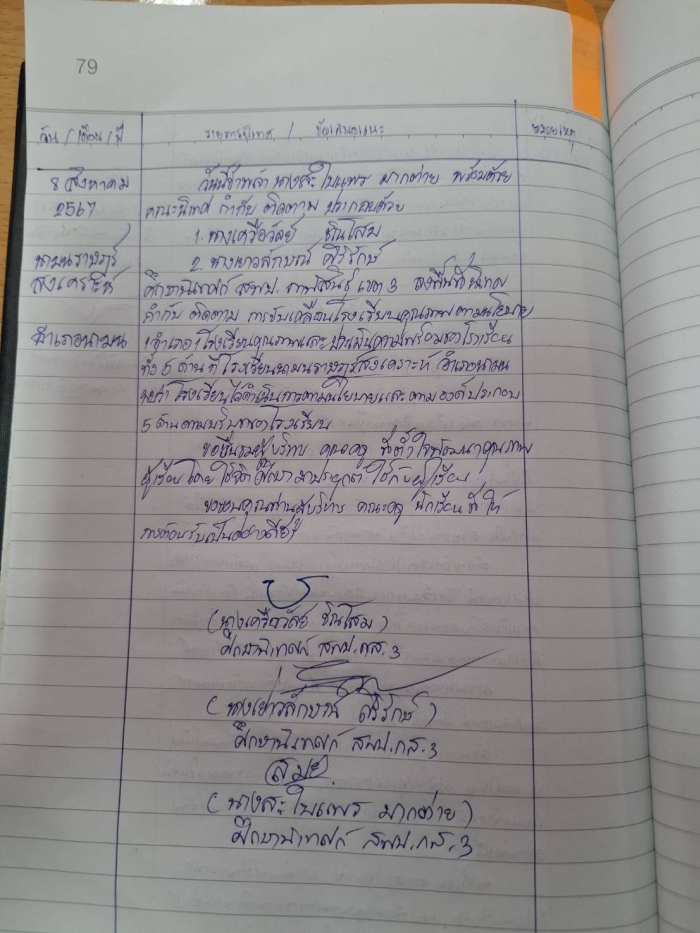 79
วัน / เดือน / ปี
รายการนิเทศ / ข้อเสนอแนะ
หมายเหตุ
8 สิงหาคม
2567
นามนราษฎร์
สงเคราะห์
อำเภอนามน
วันนี้ข้าพเจ้า นางสะใบแพร มากต่าย พร้อมด้วย
คณะนิเทศ กำกับ ติดตาม ประกอบด้วย
1. นางเครือวัลย์ ชินโสม
2. นางเยาวลักษณ์ ศิริรักษ์
ศึกษานิเทศก์ สพป. กาฬสินธุ์ เขต 3 ลงพื้นที่นิเทศ
กำกับ ติดตาม การขับเคลื่อนโรงเรียนคุณภาพตามนโยบาย
1 อำเภอ 1 โรงเรียนคุณภาพและประเมินความพร้อมของโรงเรียน
ทั้ง 5 ด้าน ที่ โรงเรียนนามนราษฎร์สงเคราะห์ อำเภอนามน
พบว่า โรงเรียนได้ดำเนินการตามนโยบายและตามองค์ประกอบ
5 ด้านตามบริบทของโรงเรียน
ขอชื่นชมผู้บริหาร คณะครู ที่ตั้งใจพัฒนาคุณภาพ
ผู้เรียน โดยใช้จิตศึกษามาประยุกต์ใช้กับผู้เรียน
ขอขอบคุณท่านผู้บริหาร คณะครู นักเรียน ที่ให้
การต้อนรับเป็นอย่างดียิ่ง
(นางเครือวัลย์ ชินโสม)
ศึกษานิเทศก์ สพป.กส.3
(นางเยาวลักษณ์ ศิริรักษ์)
ศึกษานิเทศก์ สพป.กส.3
(นางสะใบแพร มากต่าย)
ศึกษานิเทศก์ สพป.กส.3